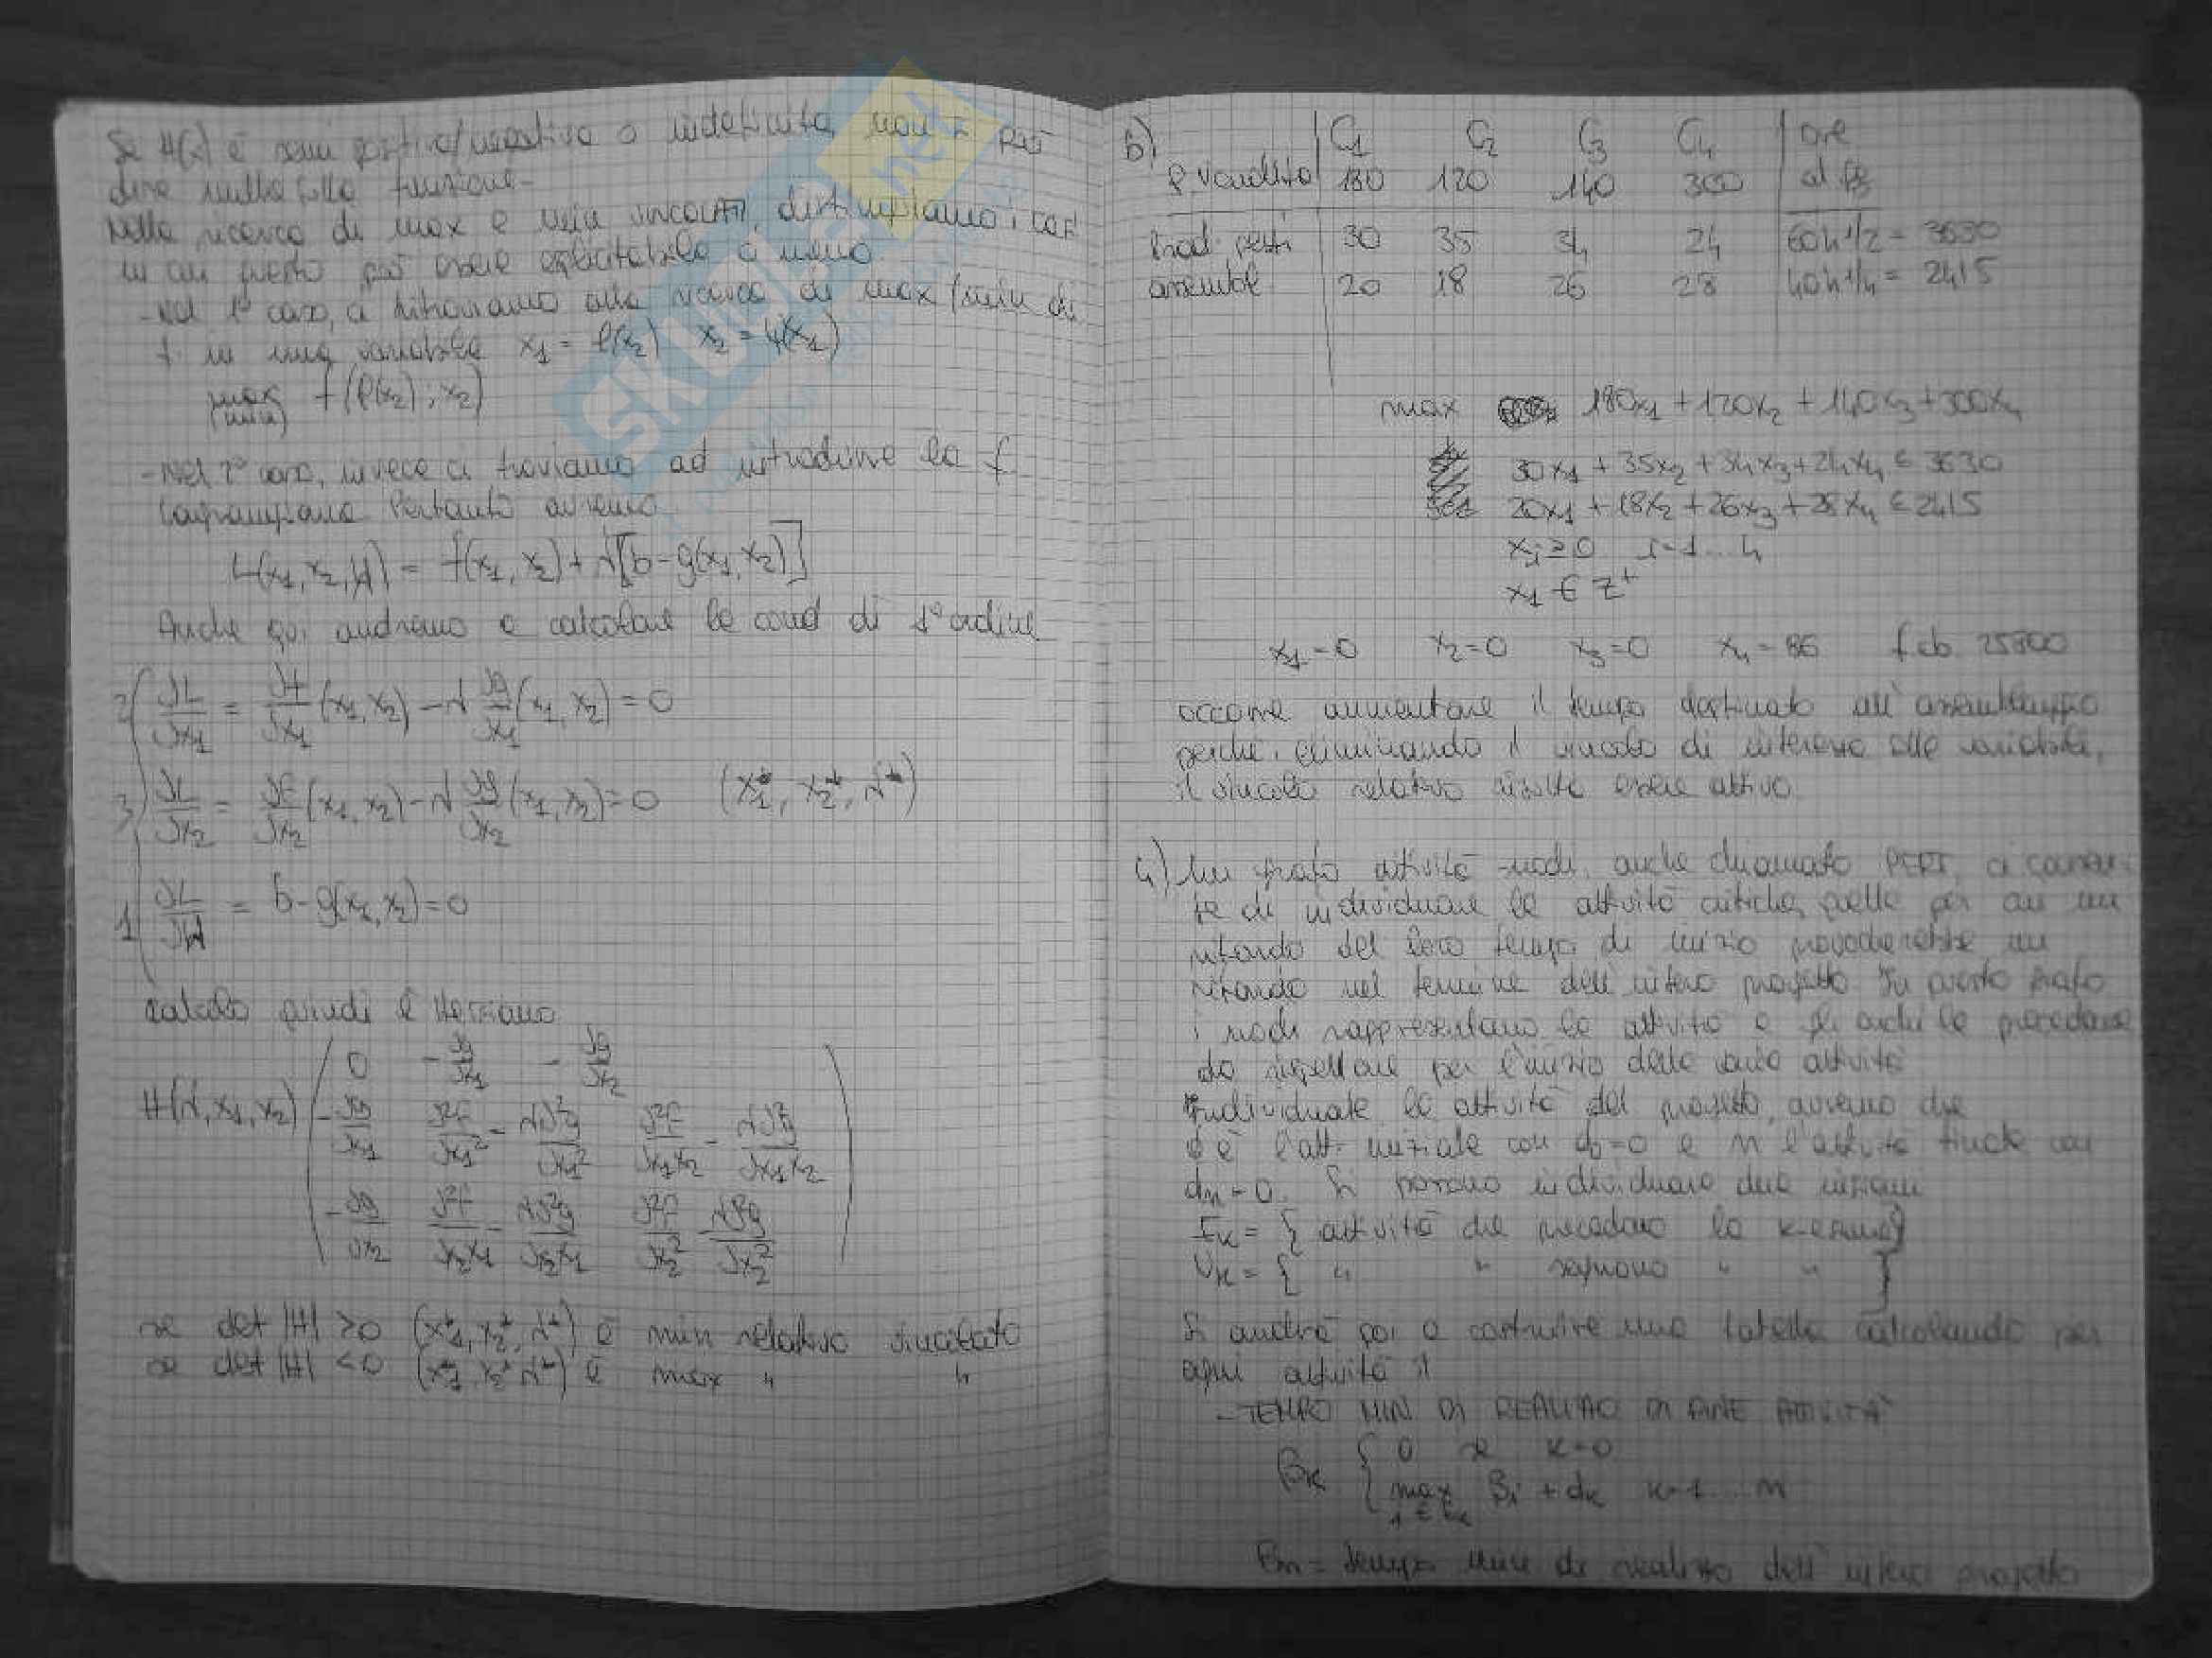 Se H(x) è semi positiva/negativa o indefinita non si può
dire nulla sulla funzione.
Nella ricerca di max e min VINCOLATI, distinguiamo i casi
in cui questo può essere esplicitabile o meno
- Nel 1° caso, ci ritroviamo alla ricerca di max/min di
f. in una variabile x1 = φ(x2) x2 = φ(x1)
max f(φ(x2); x2)
(min)
- Nel 2° caso, invece ci troviamo ad introdurre la f
Lagrangiana. Pertanto avremo
L(x1, x2, λ) = f(x1, x2) + λ[b - g(x1, x2)]
Anche qui andremo a calcolare le cond di 1° ordine
2) ∂L/∂x1 = ∂f/∂x1 (x1, x2) - λ ∂g/∂x1 (x1, x2) = 0
3) ∂L/∂x2 = ∂f/∂x2 (x1, x2) - λ ∂g/∂x2 (x1, x2) = 0 (x1*, x2*, λ*)
1) ∂L/∂λ = b - g(x1, x2) = 0
calcolo quindi l'Hessiano
0 - ∂g/∂x1 - ∂g/∂x2
H(λ, x1, x2) - ∂g/∂x1 ∂²f/∂x1² - λ∂²g/∂x1² ∂²f/∂x1x2 - λ∂²g/∂x1x2
- ∂g/∂x2 ∂²f/∂x2x1 - λ∂²g/∂x2x1 ∂²f/∂x2² - λ∂²g/∂x2²
se det |H| > 0 (x1*, x2*, λ*) è min relativo vincolato
se det |H| < 0 (x1*, x2*, λ*) è max " "
b) C1 C2 C3 C4 ore
P vendita 180 120 140 300 di
Prod. pezzi 30 35 34 24 60h 1/2 = 3630
assemble 20 18 26 28 40h 1/4 = 2415
max 180x1 + 120x2 + 140x3 + 300x4
30x1 + 35x2 + 34x3 + 24x4 ≤ 3630
20x1 + 18x2 + 26x3 + 28x4 ≤ 2415
xi ≥ 0 i=1...4
x1 ∈ Z+
x1 = 0 x2 = 0 x3 = 0 x4 = 86 f ob. 25800
occorre aumentare il tempo destinato all'assemblaggio
perché, eliminando il vincolo di interezza alle variabili,
il vincolo relativo risulta essere attivo.
4) Un grafo attività-nodi, anche chiamato PERT, ci consen-
te di individuare le attività critiche, quelle per cui un
ritardo del loro tempo di inizio provocherebbe un
ritardo nel termine dell'intero progetto. In questo grafo
i nodi rappresentano le attività e gli archi le precedenze
da rispettare per l'inizio delle varie attività
Individuate le attività del progetto, avremo che
0 è l'att. iniziale con d0=0 e n l'attività finale con
dn=0. Si possono individuare due insiemi
Ek = { attività che precedono la k-esima}
Uk = { " " seguono " " }
Si andrà poi a costruire una tabella calcolando per
ogni attività il
- TEMPO MIN DI REALIZZO DI FINE ATTIVITÀ
βk { 0 se k=0
max βi + dk k=1...n
i ∈ Ek
βn = tempo min di realizzo dell'intero progetto
SKUOLA.net